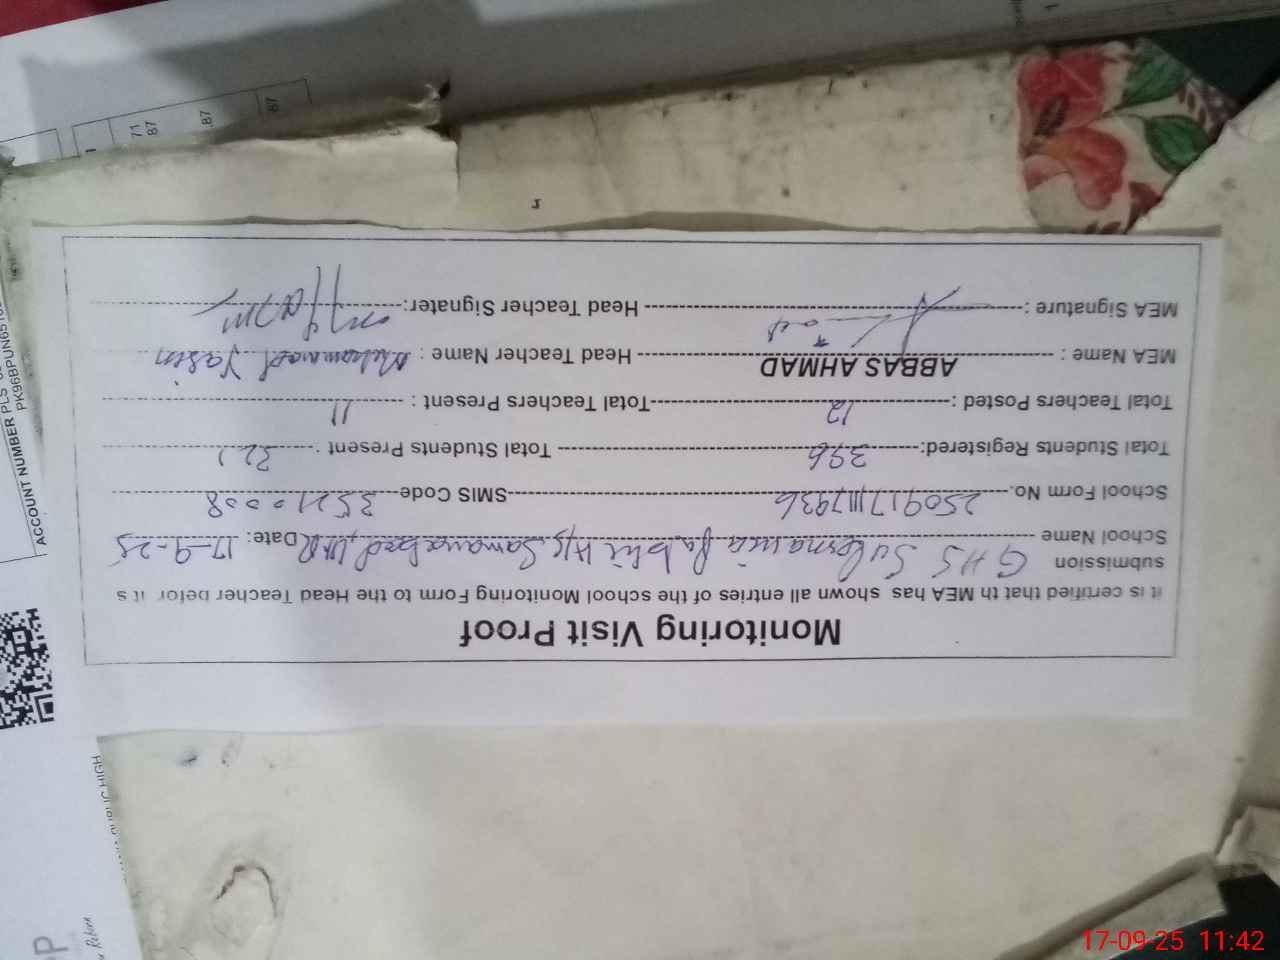 Monitoring Visit Proof
It is certified that th MEA has shown all entries of the school Monitoring Form to the Head Teacher befor it s
submission
School Name GHS Sulemania Public H/S Samanabad, LHR Date: 17-9-25
School Form No. 2509171117936 SMIS Code 35210008
Total Students Registered: 396 Total Students Present :
Total Teachers Posted : 12 Total Teachers Present : 11
MEA Name : ABBAS AHMAD Head Teacher Name : Muhammad Yasin
MEA Signature : Head Teacher Signater:
71
87
.87
87
ACCOUNT NUMBER PLS
PUBLIC HIGH
17-09-25 11:42